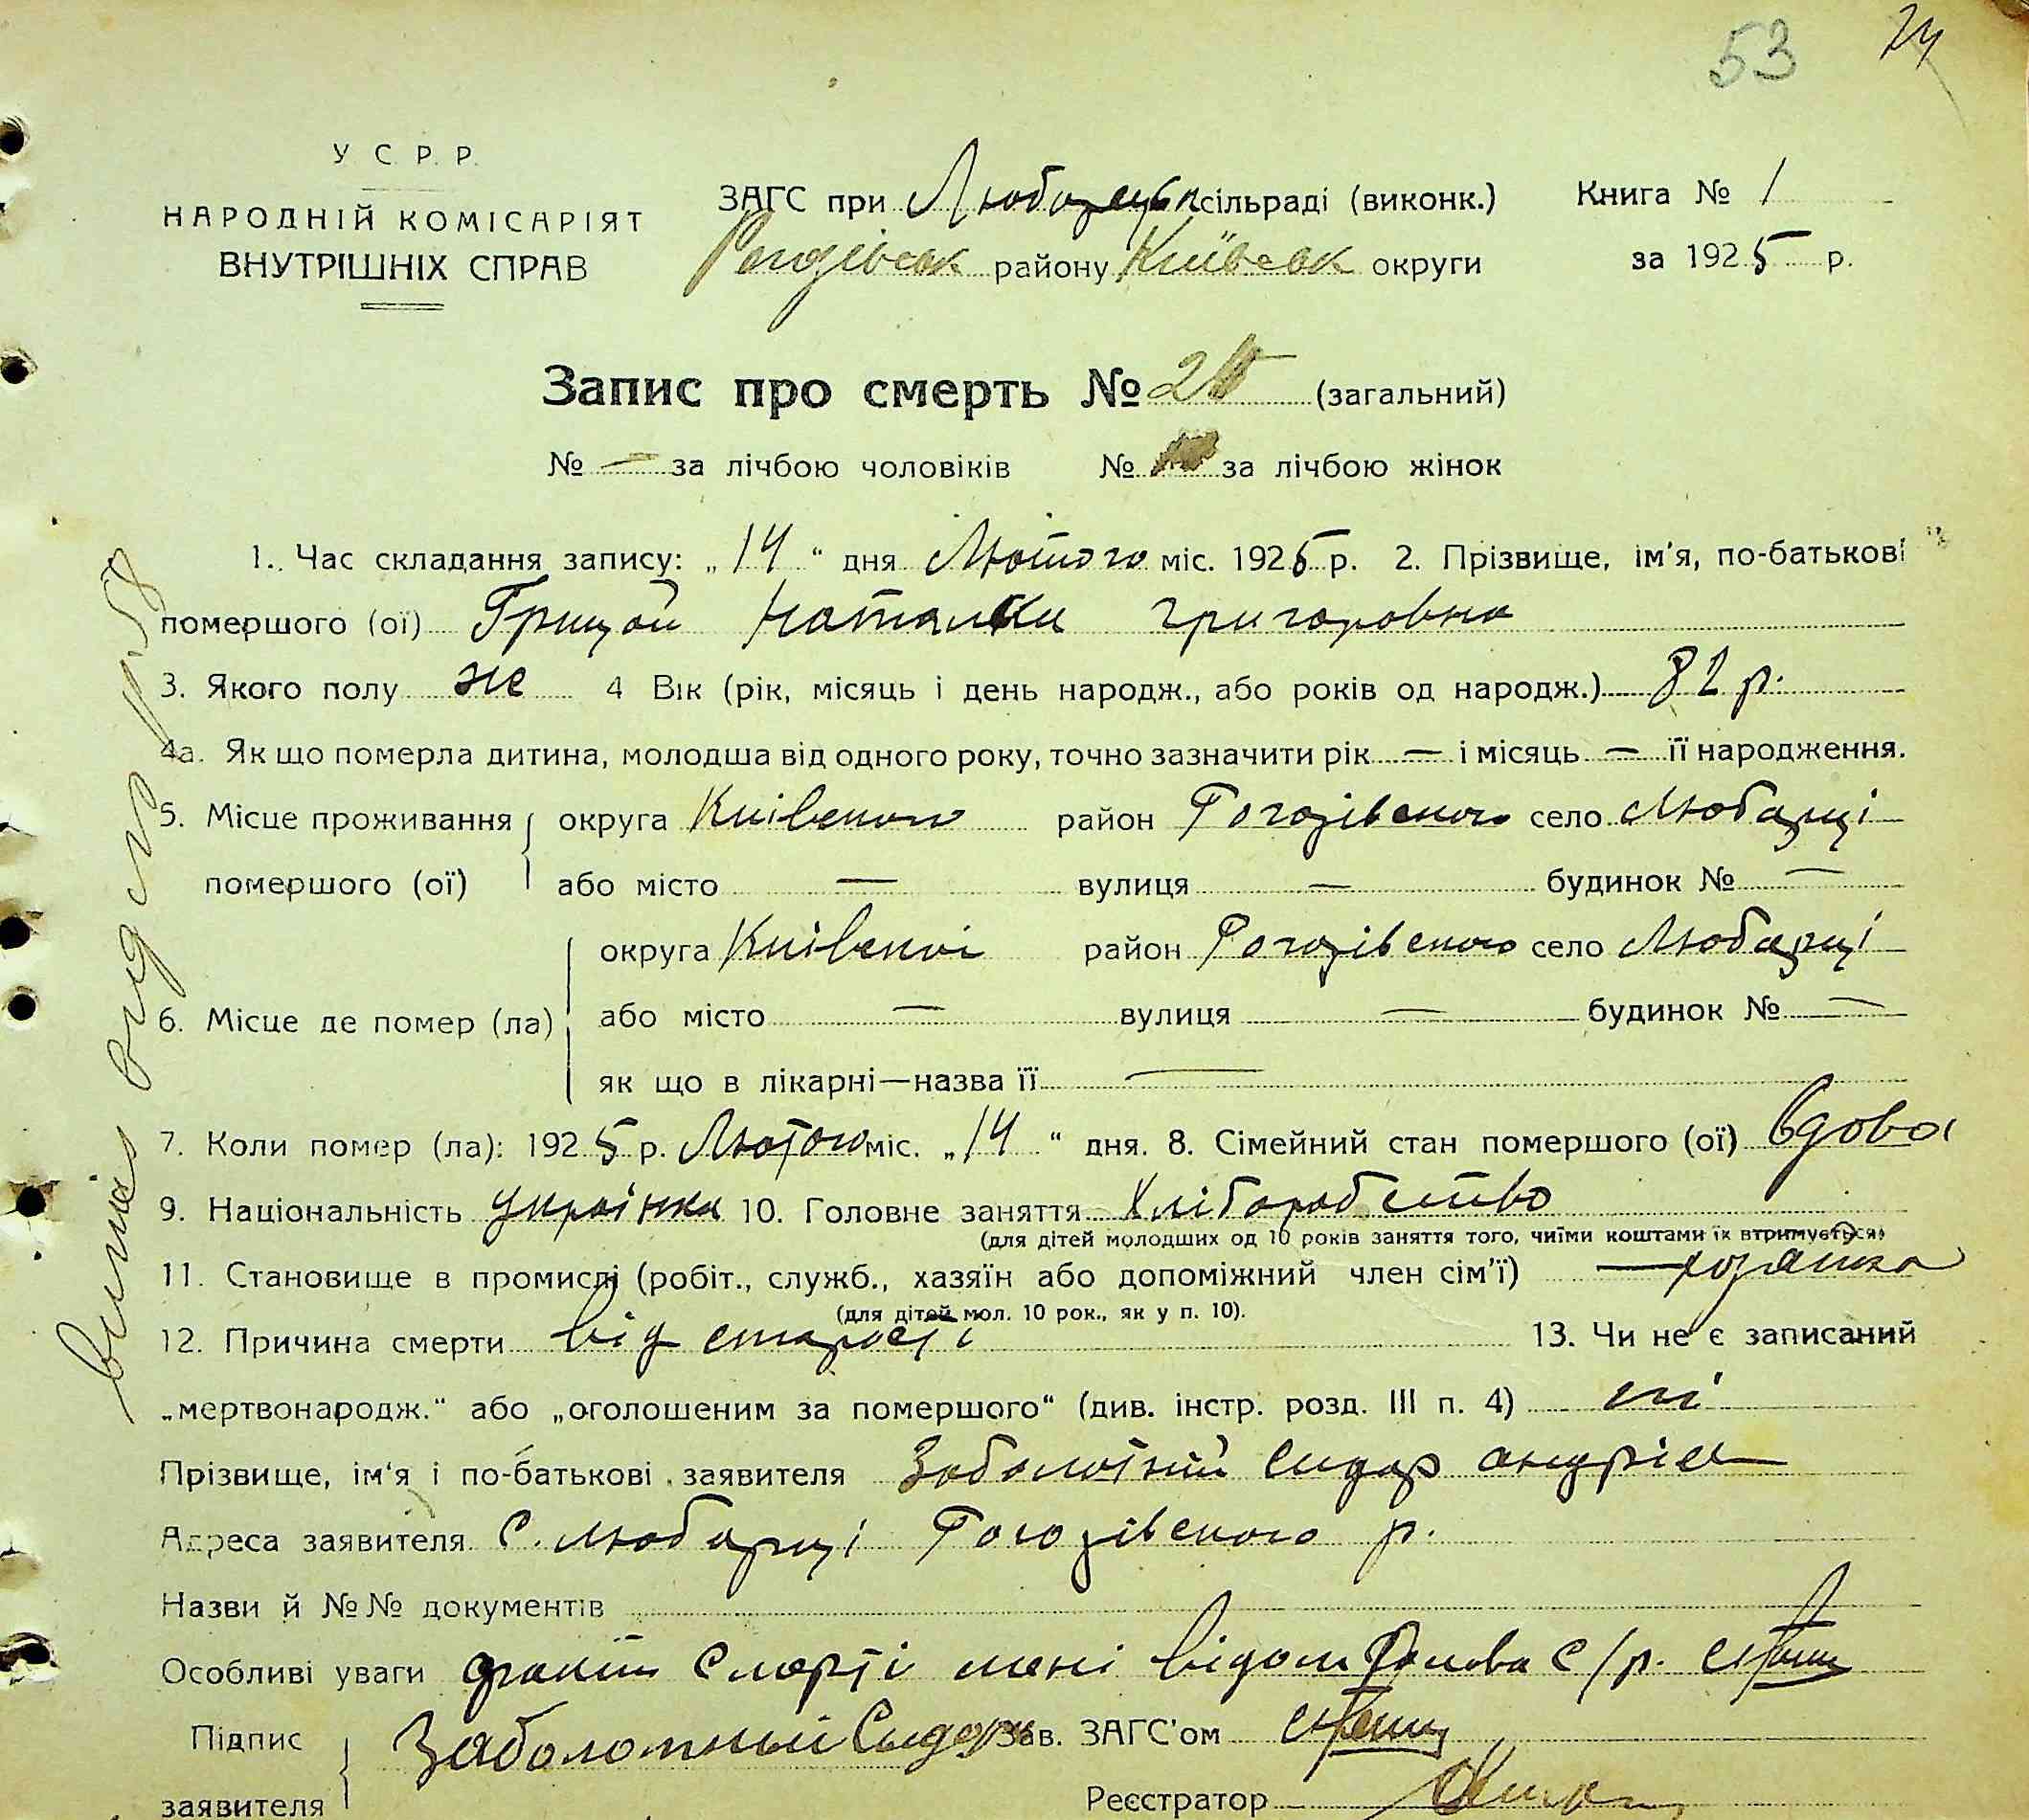 53 74
У. С. Р. Р.
НАРОДНІЙ КОМІСАРІЯТ
ВНУТРІШНІХ СПРАВ
ЗАГС при Любарецьк сільраді (виконк.)
Рогозівськ району Київськ округи
Книга № 1
за 1925 р.
Запис про смерть № (загальний)
№ — за лічбою чоловіків № за лічбою жінок
1. Час складання запису: „14“ дня Лютого міс. 1925 р. 2. Прізвище, ім'я, по-батькові
помершого (ої) Грицай Наталки григоровна
3. Якого полу же 4 Вік (рік, місяць і день народж., або років од народж.) 82 р.
4а. Як що померла дитина, молодша від одного року, точно зазначити рік — і місяць — її народження.
5. Місце проживання округа Київського район Рогозівського село Любарці
помершого (ої) або місто — вулиця — будинок № —
округа Київської район Рогозівського село Любарці
6. Місце де помер (ла) або місто — вулиця — будинок № —
як що в лікарні—назва її —
7. Коли помер (ла): 1925 р. Лютого міс. „14“ дня. 8. Сімейний стан помершого (ої) вдова
9. Національність українка 10. Головне заняття Хліборобство
(для дітей молодших од 10 років заняття того, чиїми коштами їх втримується)
11. Становище в промислі (робіт., служб., хазяїн або допоміжний член сім'ї) — хозяика
(для дітей мол. 10 рок., як у п. 10).
12. Причина смерти від старості 13. Чи не є записаний
„мертвонародж.“ або „оголошеним за помершого“ (див. інстр. розд. III п. 4) ні
Прізвище, ім'я і по-батькові заявителя Заболотній Сидар андрієв
Адреса заявителя С. Любарці Рогозівського р.
Назви й №№ документів
Особливі уваги факт смерті мені відом Голова С/р.
Підпис заявителя Заболотный Сыдор Зав. ЗАГС'ом
Реєстратор